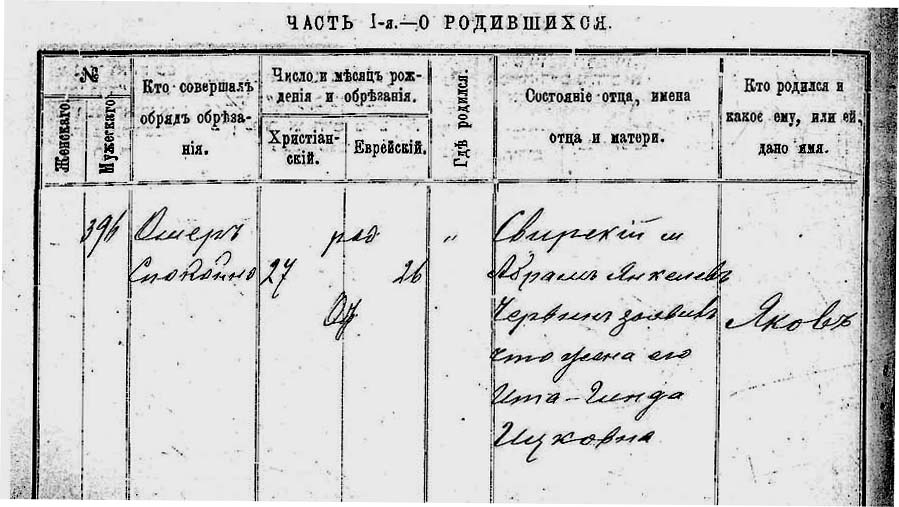 ЧАСТЬ I-я.—О РОДИВШИХСЯ.
№
Женскаго.
Мужескаго.
Кто совершалъ
обрядъ обрѣза-
нія.
Число и мѣсяцъ рож-
денія и обрѣзанія.
Христіан-
скій.
Еврейскій.
Гдѣ родился.
Состояніе отца, имена
отца и матери.
Кто родился и
какое ему, или ей,
дано имя.
396
Ошеръ
Спокойно
род
27
26
"
Свирскій м
Абрамъ Янкелевъ
Червин заявивъ
что жена его
Ита-Гинда
Ицковна
Яковъ